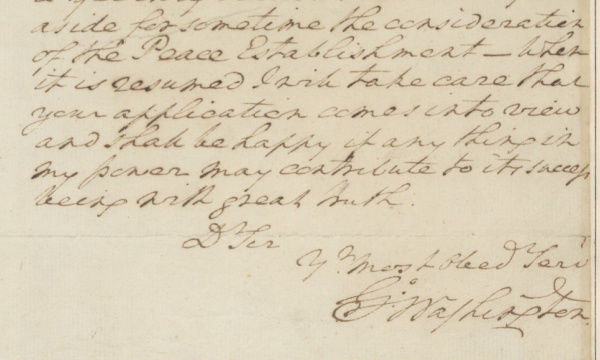 aside for sometime the consideration
of the Peace Establishment — when
it is resumed I will take care that
your application comes into view
and shall be happy if any thing in
my power may contribute to its success
being with great truth.
Dr Sir
Yr most Obed Serv
Go Washington